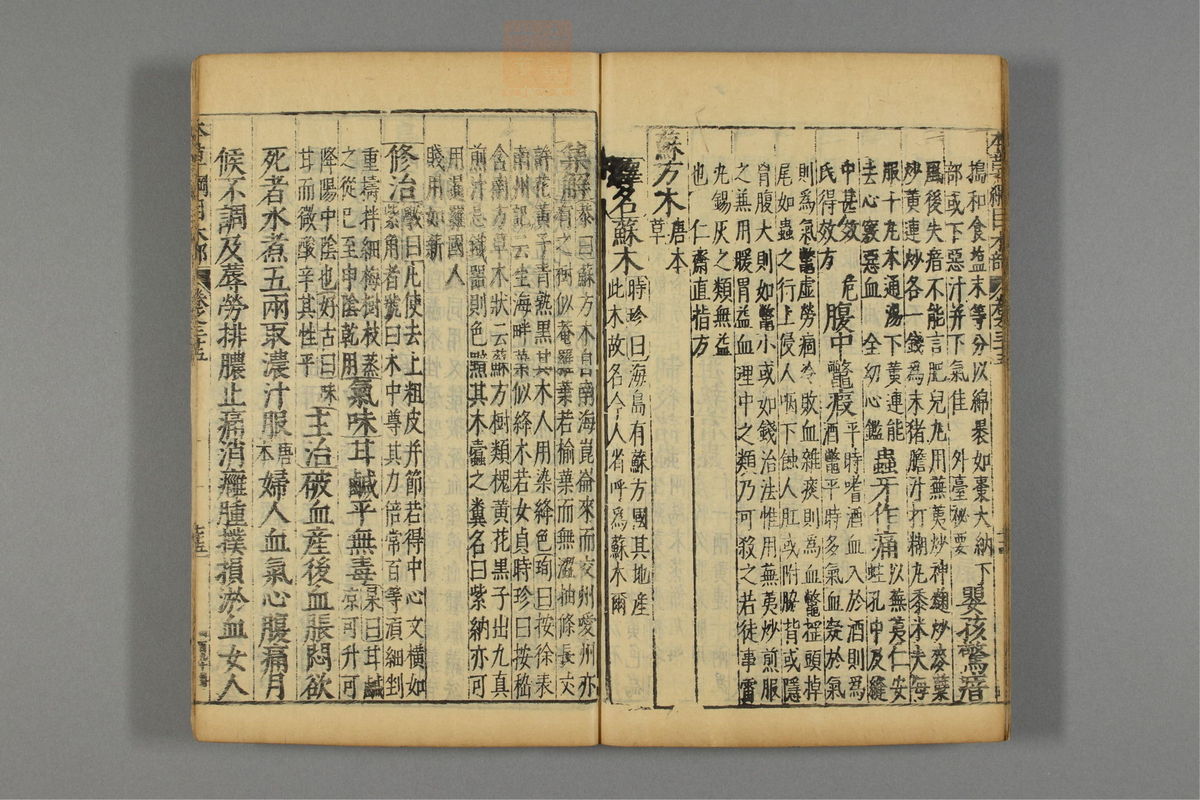 本草綱目木部 卷之三十五
搗和食鹽末等分以綿裹如棗大納下
部或下惡汁并下氣佳 外臺秘要
嬰孩驚瘖
風後失瘖不能言肥兒丸用蕪荑炒神麴炒麥蘗
炒黃連炒各一錢為末猪膽汁打糊丸黍米大每
服十丸木通湯下黃連能
去心竅惡血 全幼心鑑
蟲牙作痛
以蕪荑仁安
蛀孔中及縫
中甚效 危
氏得效方
腹中鱉瘕
平時嗜酒血入於酒則為
酒鱉平時多氣血凝於氣
則為氣鱉虛勞痼冷敗血雜痰則為血鱉揺頭掉
尾如蟲之行上侵人咽下蝕人肛或附脇背或隱
胷腹大則如鱉小或如錢治法惟用蕪荑炒煎服
之兼用暖胃益血理中之類乃可殺之若徒事雷
丸錫灰之類無益
也 仁齋直指方
蘇方木
唐本
草
釋名蘇木
時珍曰海島有蘇方國其地産
此木故名今人省呼爲蘇木爾
集解
恭曰蘇方木自南海崑崙來而交州愛州亦
有之樹似菴羅葉若榆葉而無澀抽條長丈
許花黃子青熟黑其木人用染絳色珣曰按徐表
南州記云生海畔葉似絳木若女貞時珍曰按嵇
含南方草木狀云蘇方樹類槐黃花黑子出九真
煎汁忌鐵器則色黯其木蠹之糞名曰紫納亦可
用暹羅國人
賤用如薪
修治
斆曰凡使去上粗皮并節若得中心文橫如
紫角者號曰木中尊其力倍常百等須細剉
重擣拌細梅樹枝蒸
之從巳至申陰乾用
氣味甘鹹平無毒
杲曰甘鹹
凉可升可
降陽中陰也好古曰味
甘而微酸辛其性平
主治破血産後血脹悶欲
死者水煮五兩取濃汁服
唐
本
婦人血氣心腹痛月
候不調及蓐勞排膿止痛消癰腫撲損瘀血女人
本草綱目木部 卷之三十五